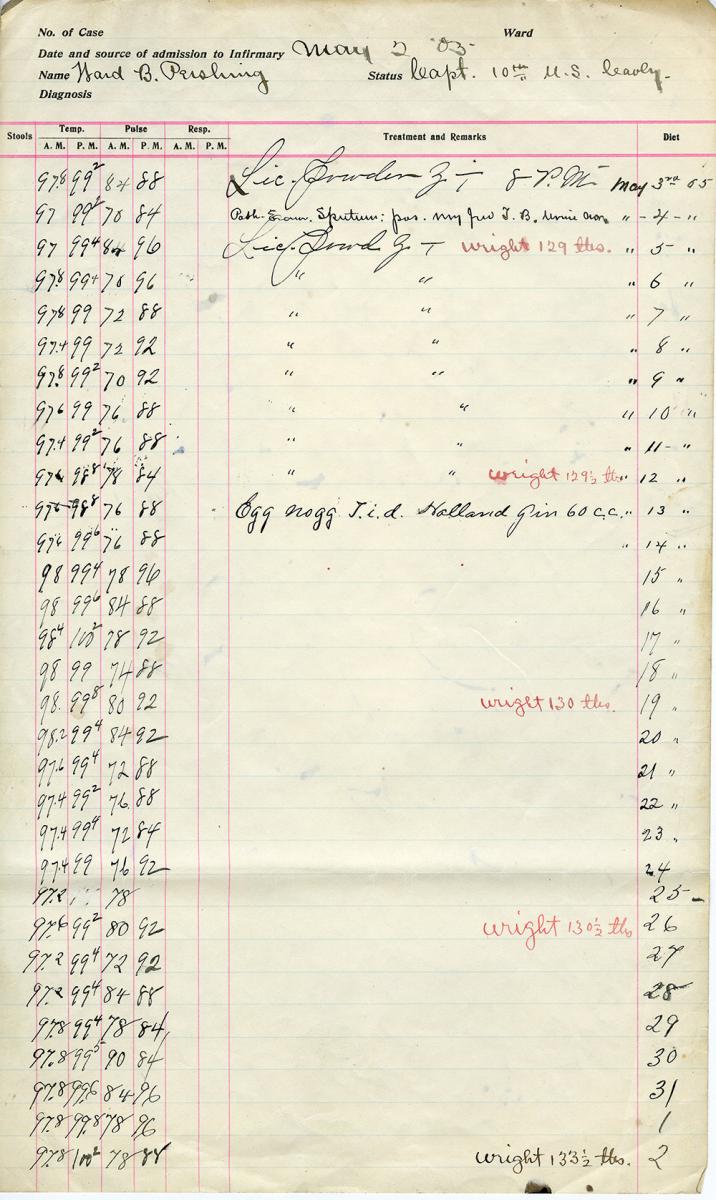 No. of Case Ward
Date and source of admission to Infirmary May 2 '05
Name Ward B. Pershing Status Capt. 10th U.S. Cavly.
Diagnosis
Stools Temp. Pulse Resp. Treatment and Remarks Diet
A. M. P. M. A. M. P. M. A. M. P. M.
97.8 99² 84 88 Lic. Powder 8 P.M. May 3rd 05
97 99² 70 84 Path. Exam. Sputum: pos. T. B. " - 4 - "
97 99⁴ 84 96 Lic. Powd wright 129 lbs. " 5 - "
97.8 99⁴ 70 96 " " " 6 "
97.8 99 72 88 " " " 7 "
97.4 99 72 92 " " " 8 "
97.8 99² 70 92 " " " 9 "
97.6 99 76 88 " " " 10 "
97.4 99² 76 88 " " " 11 - "
97.6 98⁸ 78 84 " " wright 129½ lbs. " 12 "
97.6 98⁸ 76 88 Egg nogg T.i.d. Holland Gin 60 c.c. " 13 "
97.6 99⁶ 76 88 " 14 "
98 99⁴ 78 96 15 "
98 99⁶ 84 88 16 "
98⁴ 100² 78 92 17 "
98 99 74 88 18 "
98. 99⁸ 80 92 wright 130 lbs. 19 "
98.2 99⁴ 84 92 20 "
97.6 99⁴ 72 88 21 "
97.4 99² 76 88 22 "
97.4 99⁴ 72 84 23 "
97.4 99 76 92 24
97.2 78 25 -
97.6 99² 80 92 wright 130½ lbs 26
97.2 99⁴ 72 92 27
97.2 99⁴ 84 88 28
97.8 99⁴ 78 84 29
97.8 99⁵ 90 84 30
97.8 99.6 84 96 31
97.8 99.8 78 96 1
97.8 100² 78 88 wright 133½ lbs. 2